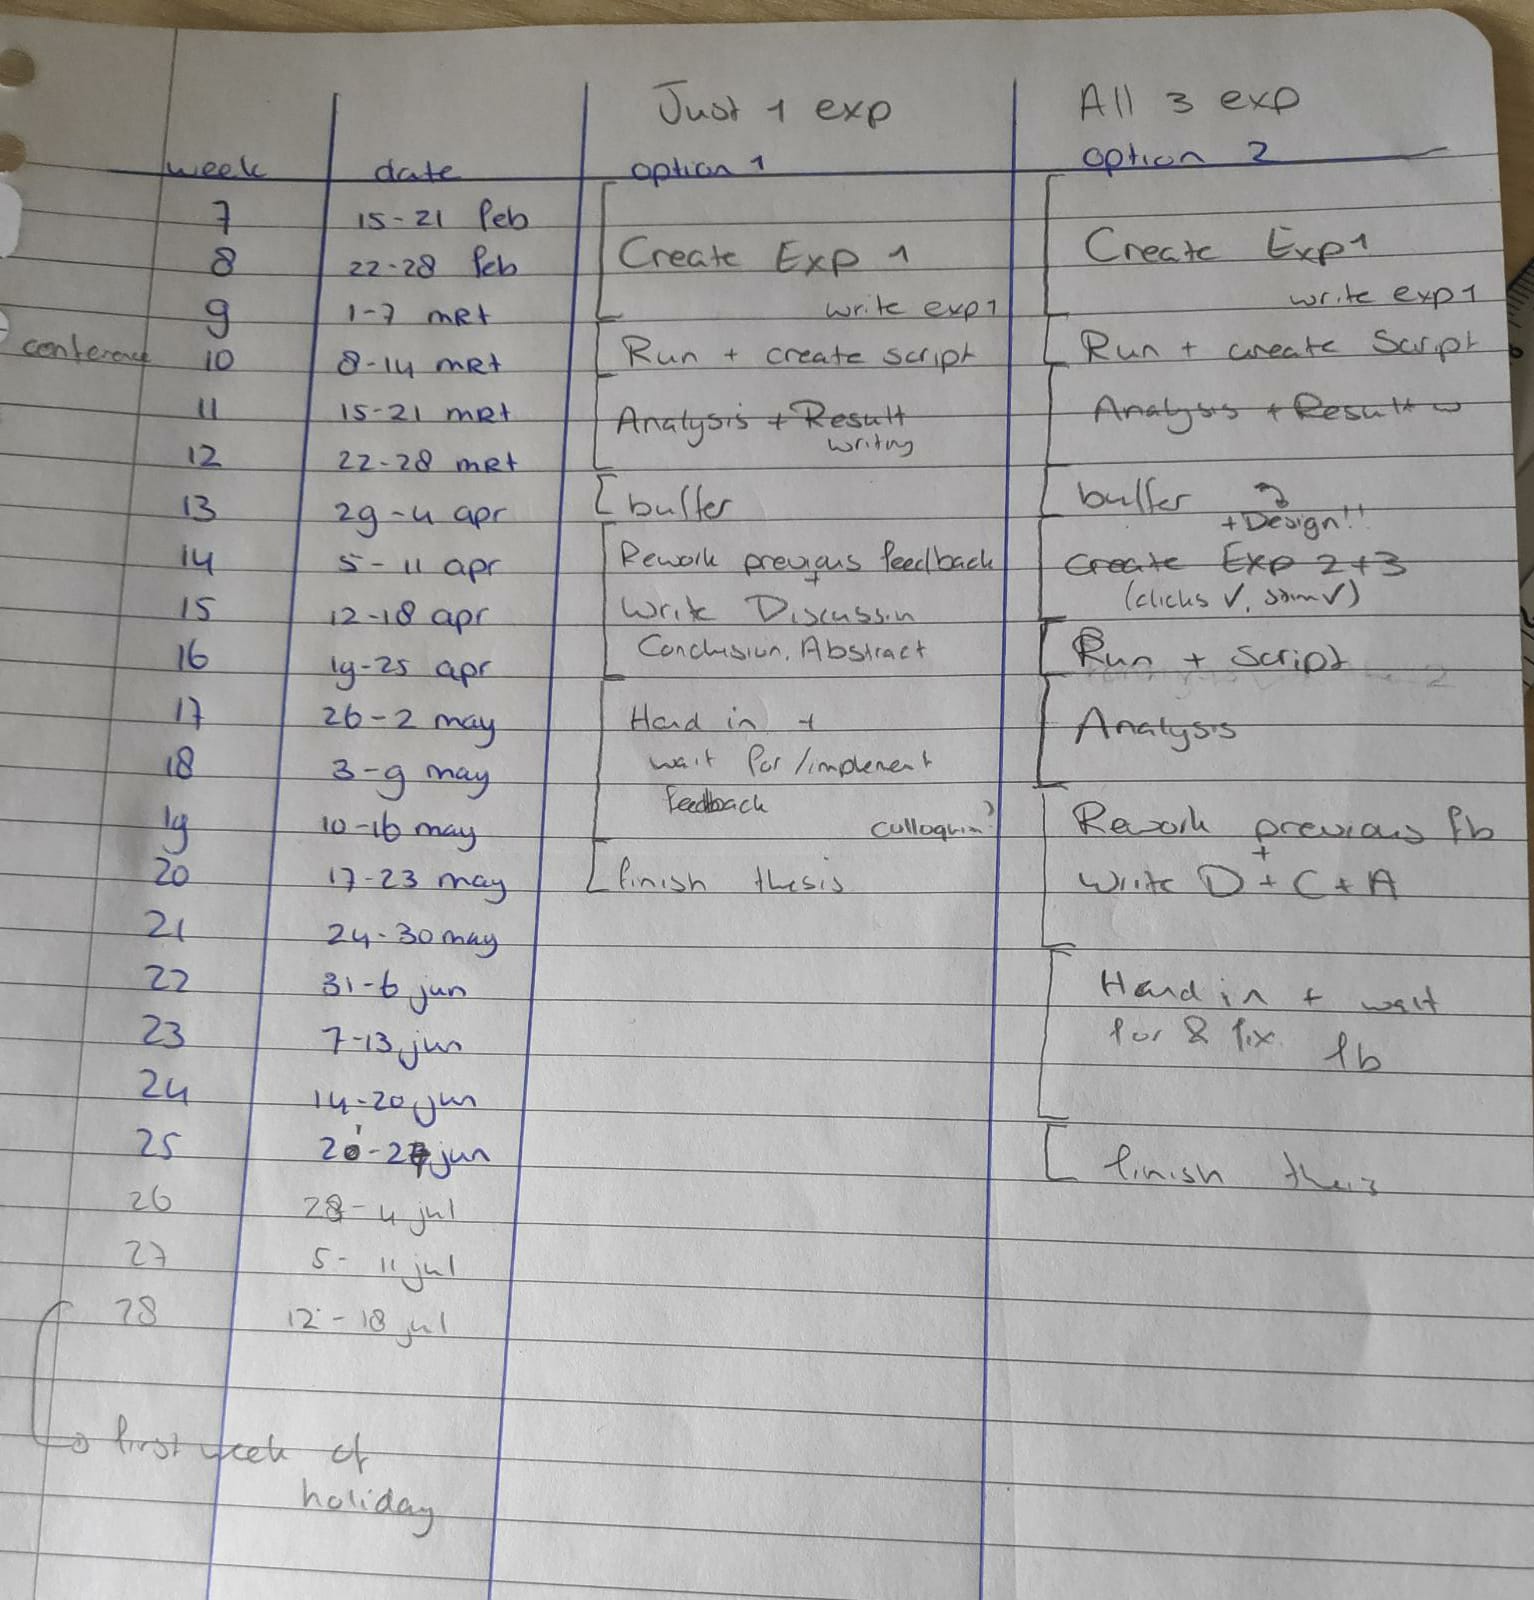 Just 1 exp All 3 exp
week date option 1 option 2
7 15-21 feb
8 22-28 feb Create Exp 1 Create Exp1
9 1-7 mrt write exp1 write exp1
conference 10 8-14 mrt Run + create script Run + create Script
11 15-21 mrt Analysis + Result Analysis + Result w
writing
12 22-28 mrt
13 29-4 apr buffer buffer
+Design!!
14 5-11 apr Rework previous feedback Create Exp 2+3
+
15 12-18 apr Write Discussion (clicks √, stim √)
16 19-25 apr Conclusion, Abstract Run + Script
17 26-2 may Hand in + Analysis
18 3-9 may wait for/implement
feedback
19 10-16 may colloquium? Rework previous fb
+
20 17-23 may finish thesis Write D + C + A
21 24-30 may
22 31-6 jun Hand in + wait
23 7-13 jun for & fix fb
24 14-20 jun
25 21-27 jun finish thesis
26 28-4 jul
27 5-11 jul
28 12-18 jul
→ first week of
holiday